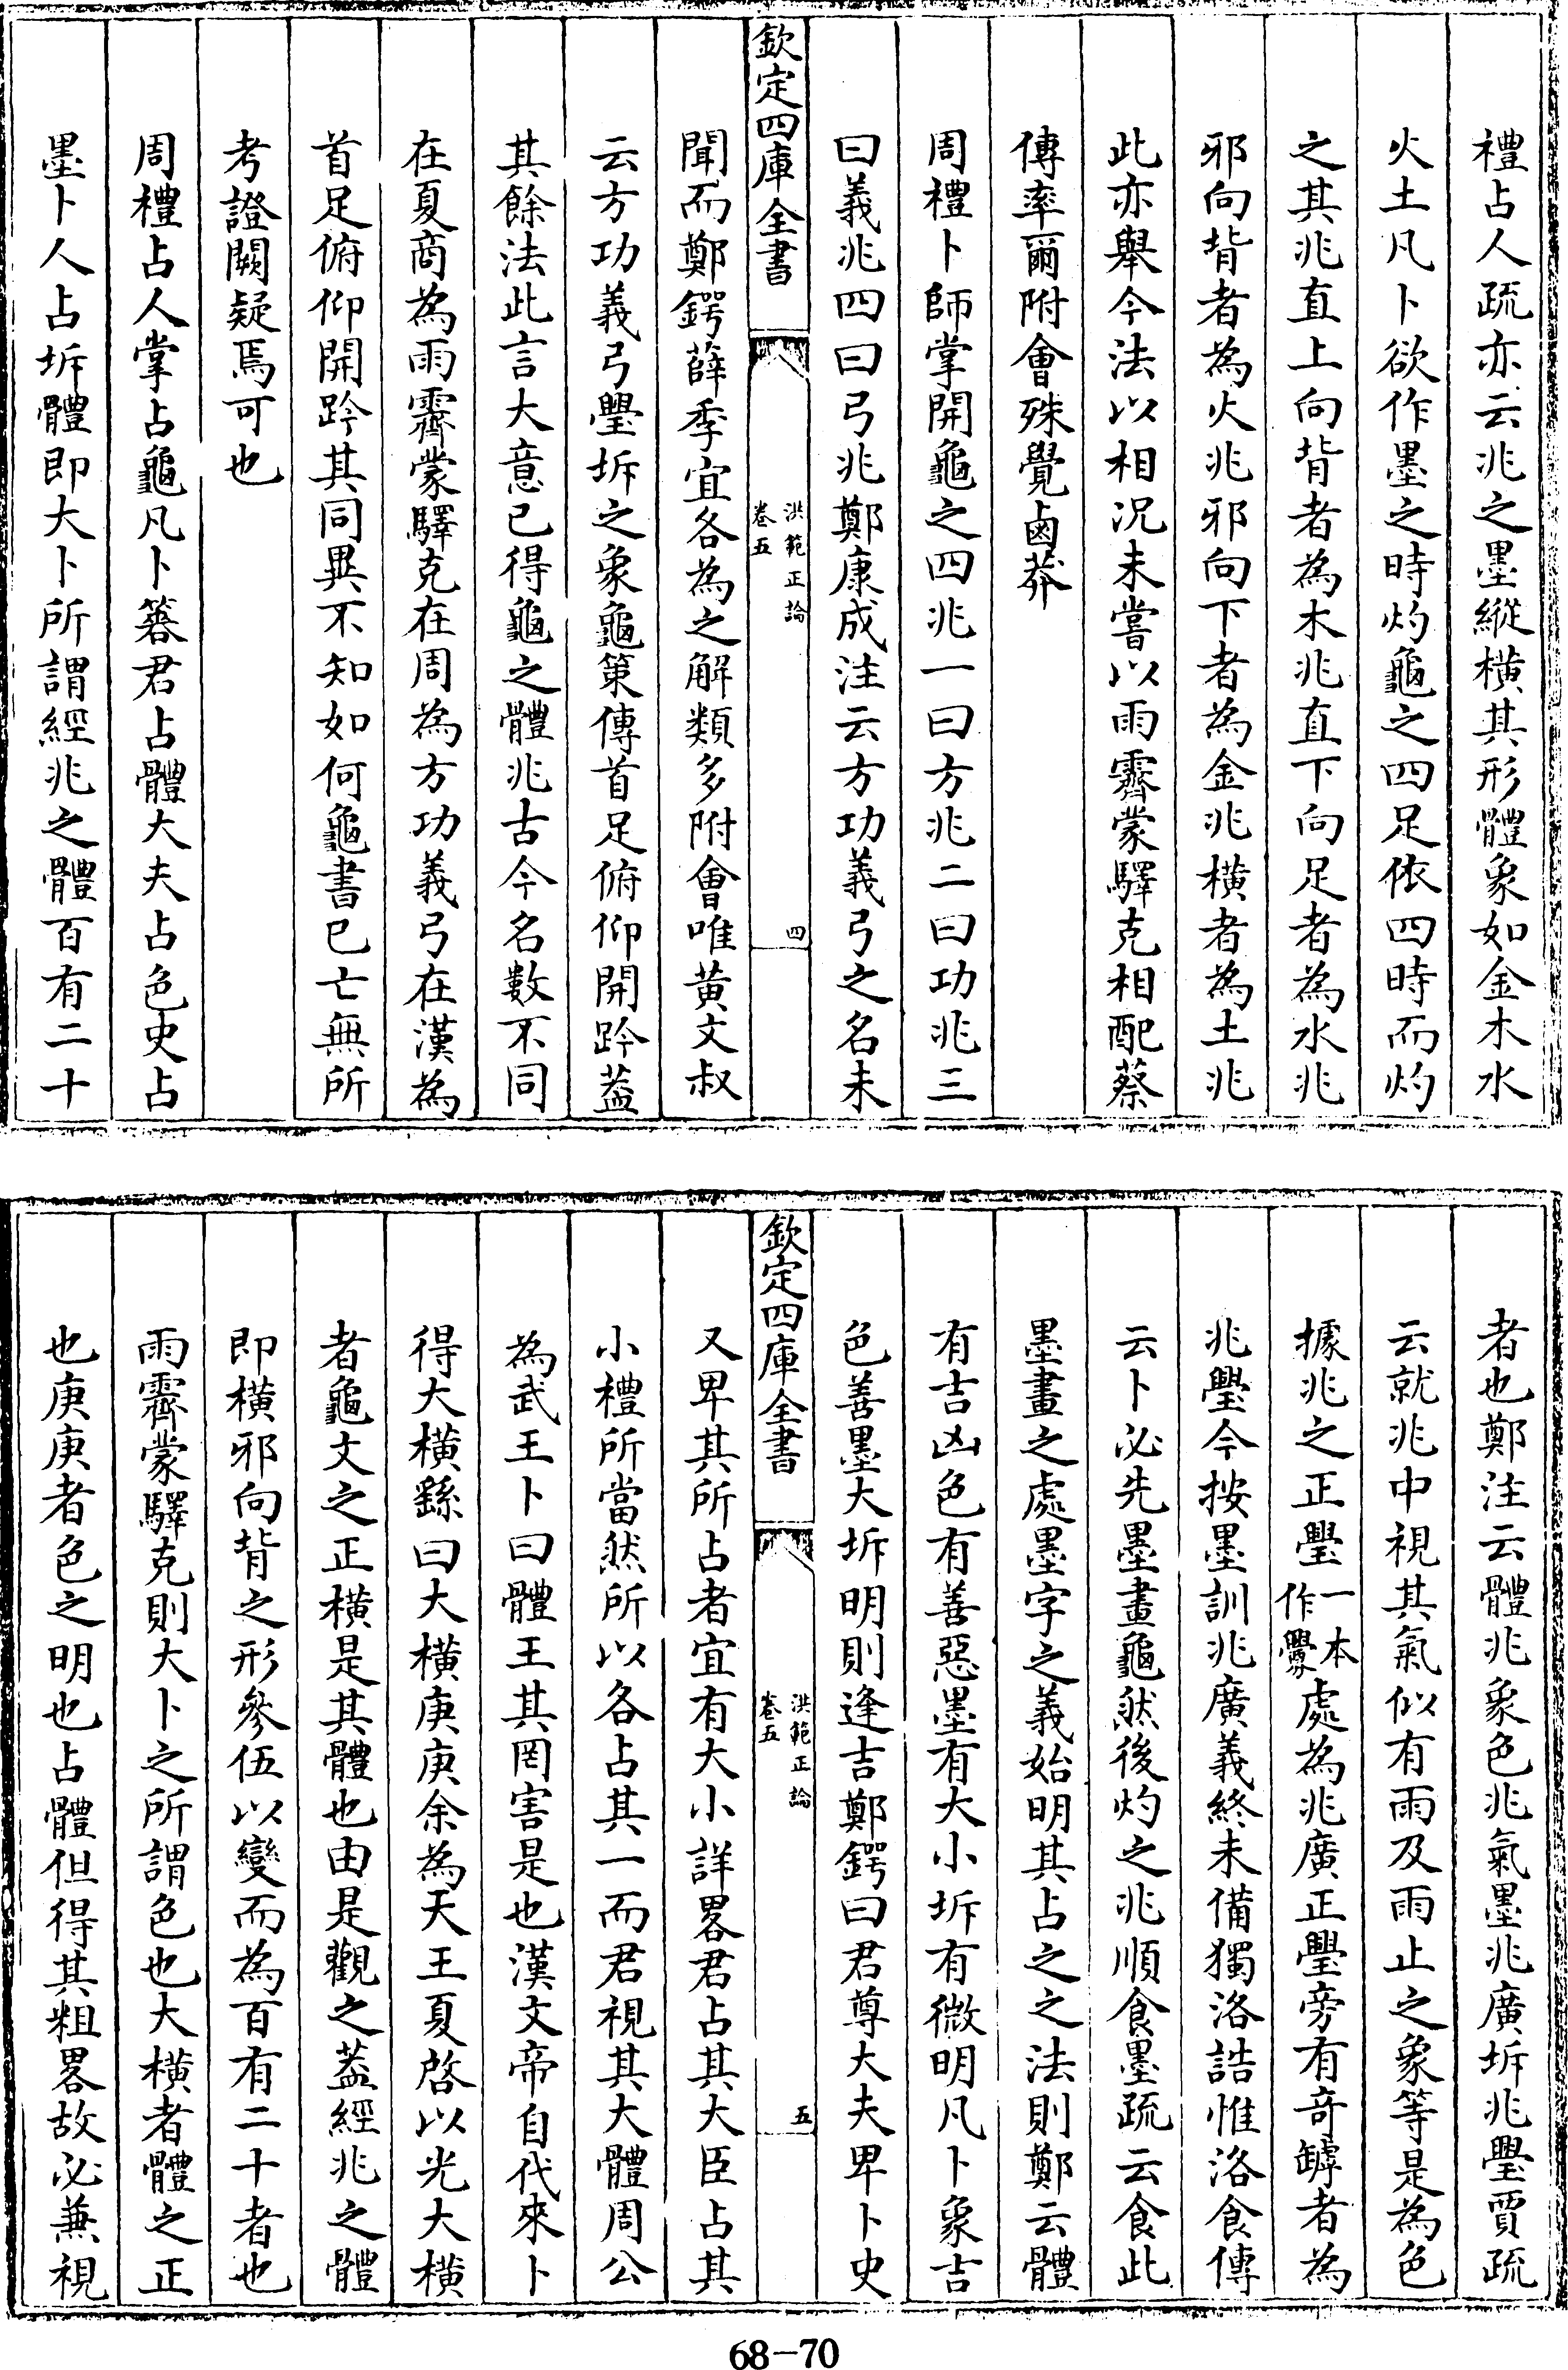 禮占人疏亦云兆之墨縱橫其形體象如金木水
火土凡卜欲作墨之時灼龜之四足依四時而灼
之其兆直上向背者為木兆直下向足者為水兆
邪向背者為火兆邪向下者為金兆橫者為土兆
此亦舉今法以相況未嘗以雨霽蒙驛克相配蔡
傳率爾附會殊覺鹵莽
周禮卜師掌開龜之四兆一曰方兆二曰功兆三
曰義兆四曰弓兆鄭康成注云方功義弓之名未
欽定四庫全書
洪範正論
卷五
四
聞而鄭鍔薛季宣各為之解類多附會唯黃文叔
云方功義弓璺坼之象龜策傳首足俯仰開跉蓋
其餘法此言大意已得龜之體兆古今名數不同
在夏商為雨霽蒙驛克在周為方功義弓在漢為
首足俯仰開跉其同異不知如何龜書已亡無所
考證闕疑焉可也
周禮占人掌占龜凡卜簭君占體大夫占色史占
墨卜人占坼體即大卜所謂經兆之體百有二十
者也鄭注云體兆象色兆氣墨兆廣坼兆璺賈疏
云就兆中視其氣似有雨及雨止之象等是為色
據兆之正璺一本作釁處為兆廣正璺旁有奇罅者為
兆璺今按墨訓兆廣義終未備獨洛誥惟洛食傳
云卜必先墨畫龜然後灼之兆順食墨疏云食此
墨畫之處墨字之義始明其占之之法則鄭云體
有吉凶色有善惡墨有大小坼有微明凡卜象吉
色善墨大坼明則逢吉鄭鍔曰君尊大夫卑卜史
欽定四庫全書
洪範正論
卷五
五
又卑其所占者宜有大小詳畧君占其大臣占其
小禮所當然所以各占其一而君視其大體周公
為武王卜曰體王其罔害是也漢文帝自代來卜
得大橫繇曰大橫庚庚余為天王夏啓以光大橫
者龜文之正橫是其體也由是觀之蓋經兆之體
即橫邪向背之形參伍以變而為百有二十者也
雨霽蒙驛克則大卜之所謂色也大橫者體之正
也庚庚者色之明也占體但得其粗畧故必兼視
68-70